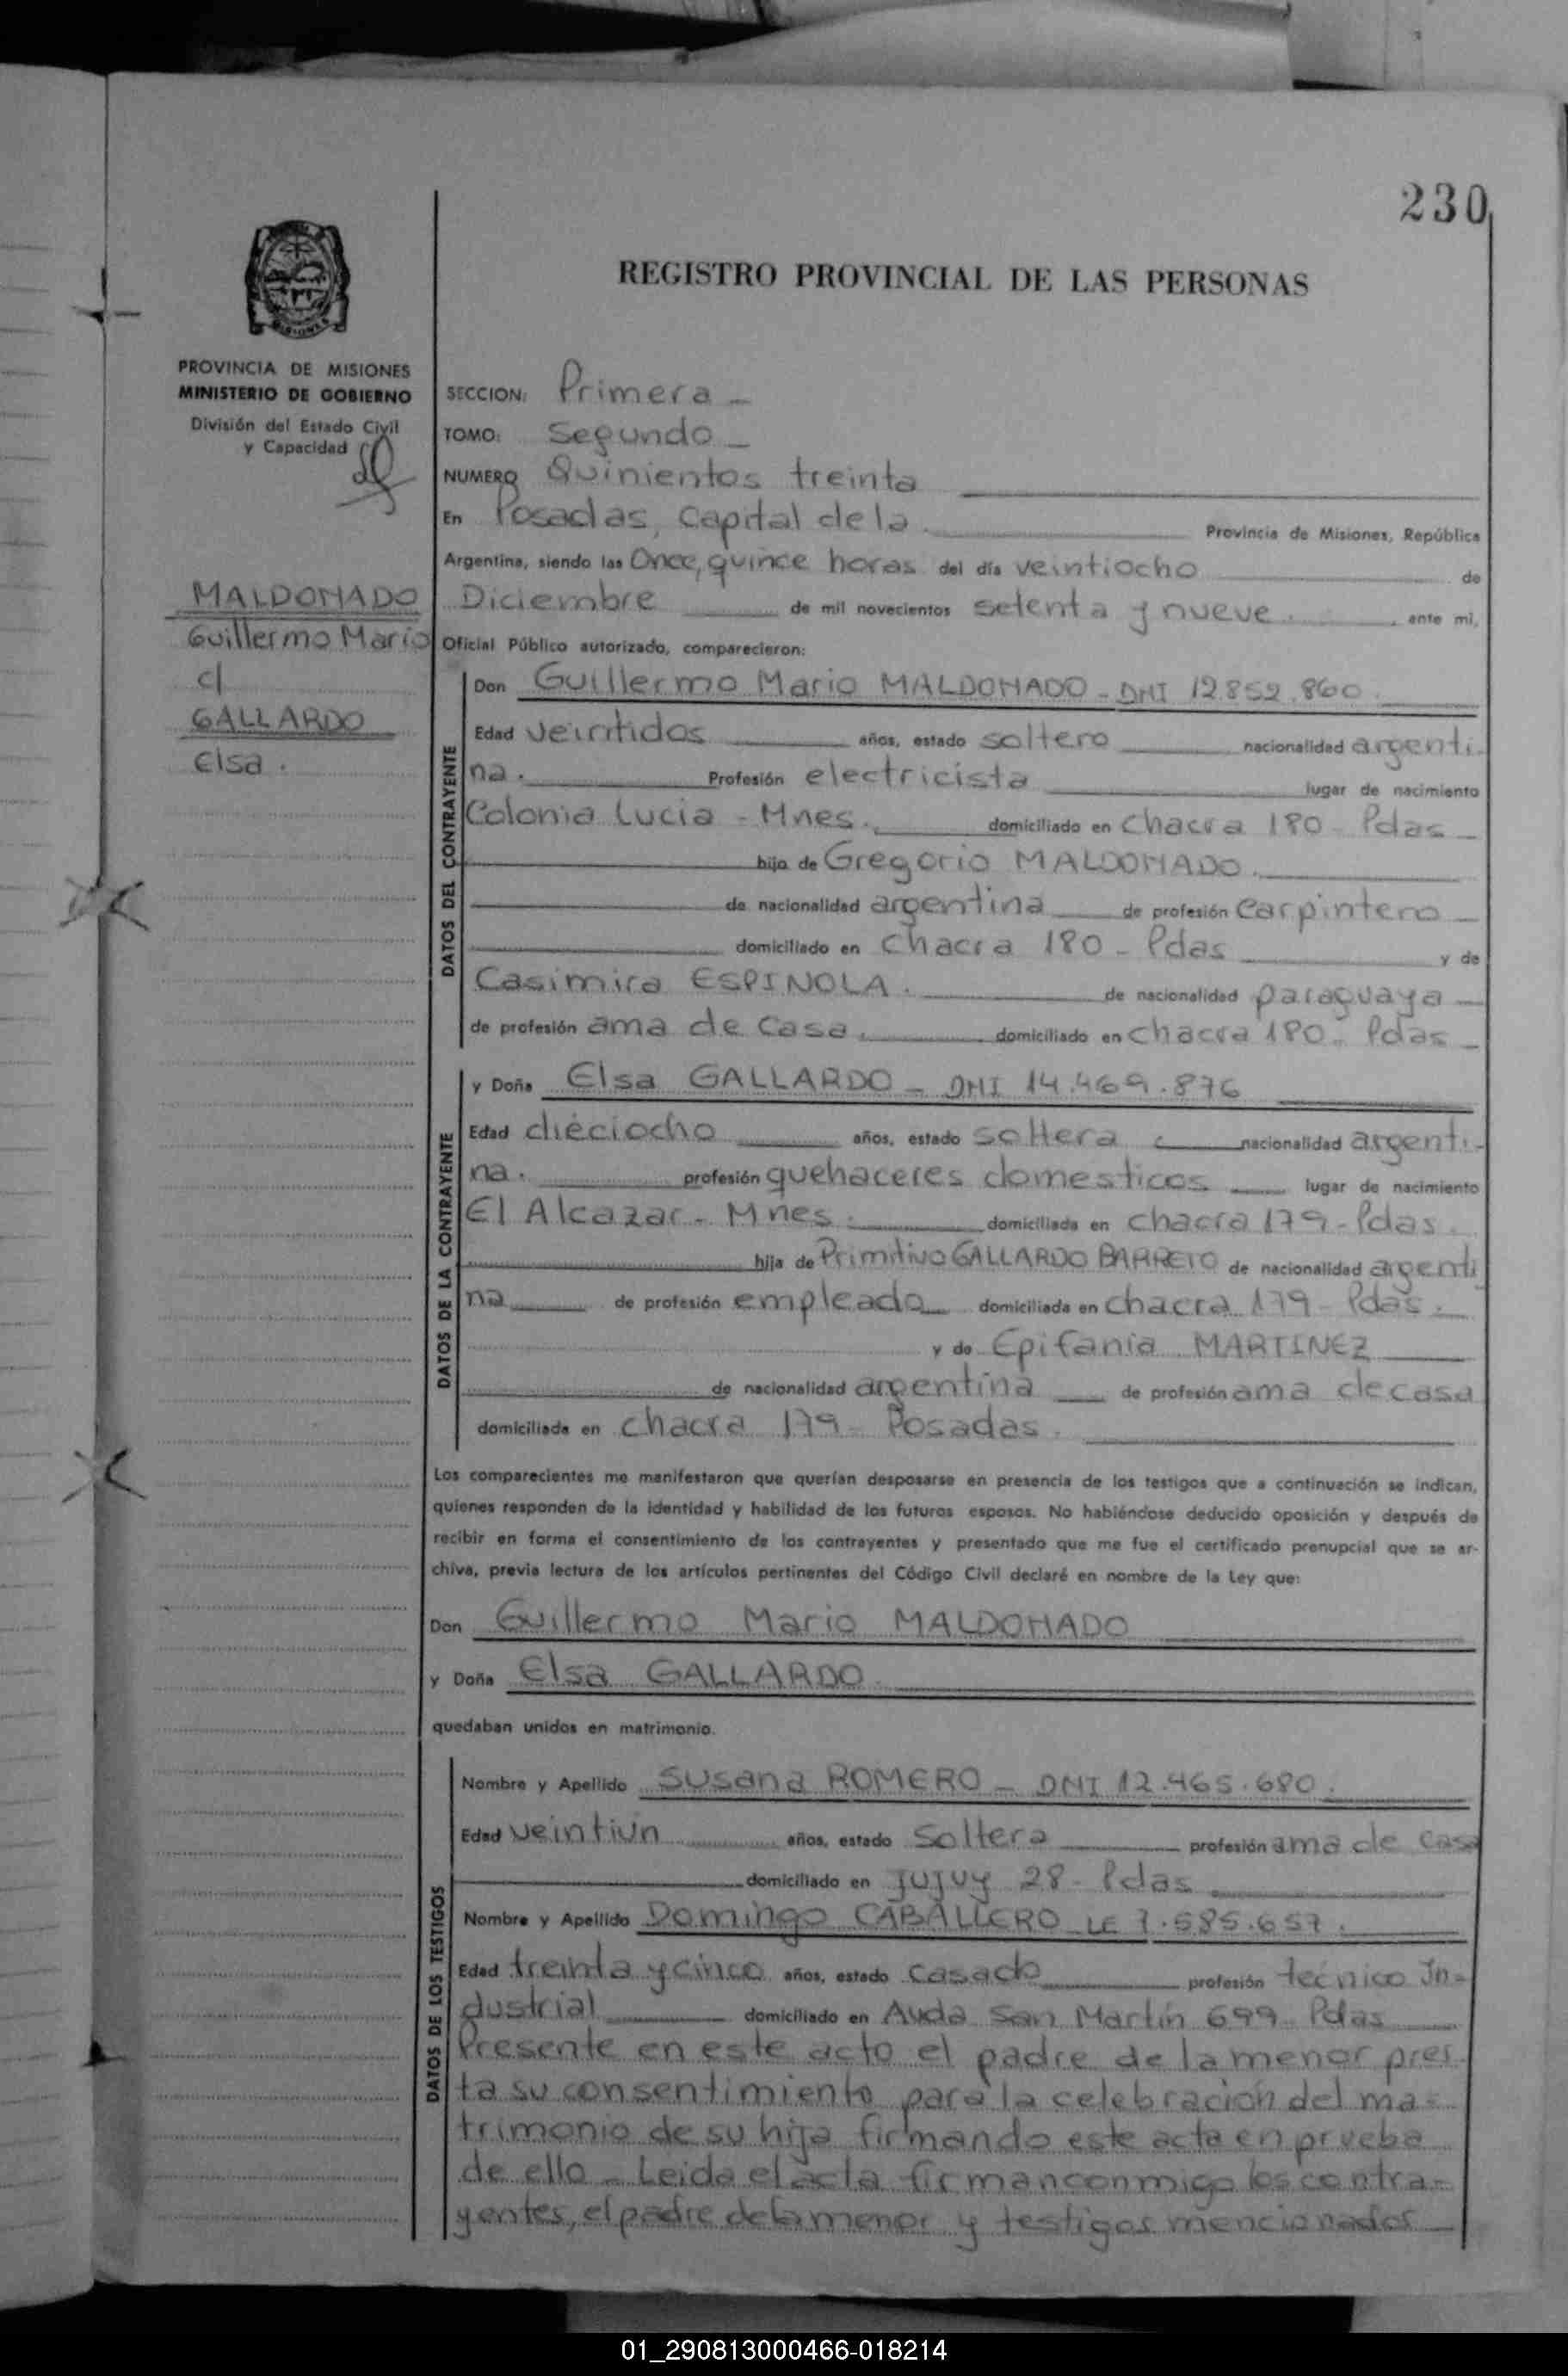 230
REGISTRO PROVINCIAL DE LAS PERSONAS
PROVINCIA DE MISIONES
MINISTERIO DE GOBIERNO
División del Estado Civil
y Capacidad
MALDONADO
Guillermo Mario
c/
GALLARDO
Elsa.
SECCION: Primera -
TOMO: Segundo -
NUMERO Quinientos treinta
En Posadas, Capital de la Provincia de Misiones, República
Argentina, siendo las Once, quince horas del día veintiocho de
Diciembre de mil novecientos setenta y nueve. ante mi,
Oficial Público autorizado, comparecieron:
DATOS DEL CONTRAYENTE
Don Guillermo Mario MALDONADO - DNI 12.852.860.
Edad veintidos años, estado soltero nacionalidad argenti-
na. Profesión electricista lugar de nacimiento
Colonia Lucia - Mnes. domiciliado en chacra 180 - Pdas -
hijo de Gregorio MALDONADO.
de nacionalidad argentina de profesión Carpintero -
domiciliado en chacra 180 - Pdas y de
Casimira ESPINOLA. de nacionalidad paraguaya -
de profesión ama de casa. domiciliado en chacra 180 - Pdas -
DATOS DE LA CONTRAYENTE
y Doña Elsa GALLARDO - DNI 14.469.876
Edad dieciocho años, estado soltera nacionalidad argenti-
na. profesión quehaceres domesticos lugar de nacimiento
El Alcazar - Mnes. domiciliada en chacra 179 - Pdas.
hija de Primitivo GALLARDO BARRETO de nacionalidad argenti
na de profesión empleado domiciliada en chacra 179 - Pdas.
y de Epifania MARTINEZ
de nacionalidad argentina de profesión ama de casa
domiciliada en chacra 179 - Posadas.
Los comparecientes me manifestaron que querían desposarse en presencia de los testigos que a continuación se indican,
quienes responden de la identidad y habilidad de los futuros esposos. No habiéndose deducido oposición y después de
recibir en forma el consentimiento de los contrayentes y presentado que me fue el certificado prenupcial que se ar-
chiva, previa lectura de los artículos pertinentes del Código Civil declaré en nombre de la Ley que:
Don Guillermo Mario MALDONADO
y Doña Elsa GALLARDO.
quedaban unidos en matrimonio.
DATOS DE LOS TESTIGOS
Nombre y Apellido Susana ROMERO - DNI 12.465.680.
Edad veintiun años, estado soltera profesión ama de casa
domiciliado en Jujuy 28 - Pdas
Nombre y Apellido Domingo CABALLERO LE 7.585.657.
Edad treinta y cinco años, estado casado profesión tecnico In-
dustrial domiciliado en Avda San Martín 699 - Pdas
Presente en este acto el padre de la menor pres-
ta su consentimiento para la celebración del ma-
trimonio de su hija firmando este acta en prueba
de ello - Leida el acta firman conmigo los contra-
yentes, el padre de la menor y testigos mencionados -
01_290813000466-018214